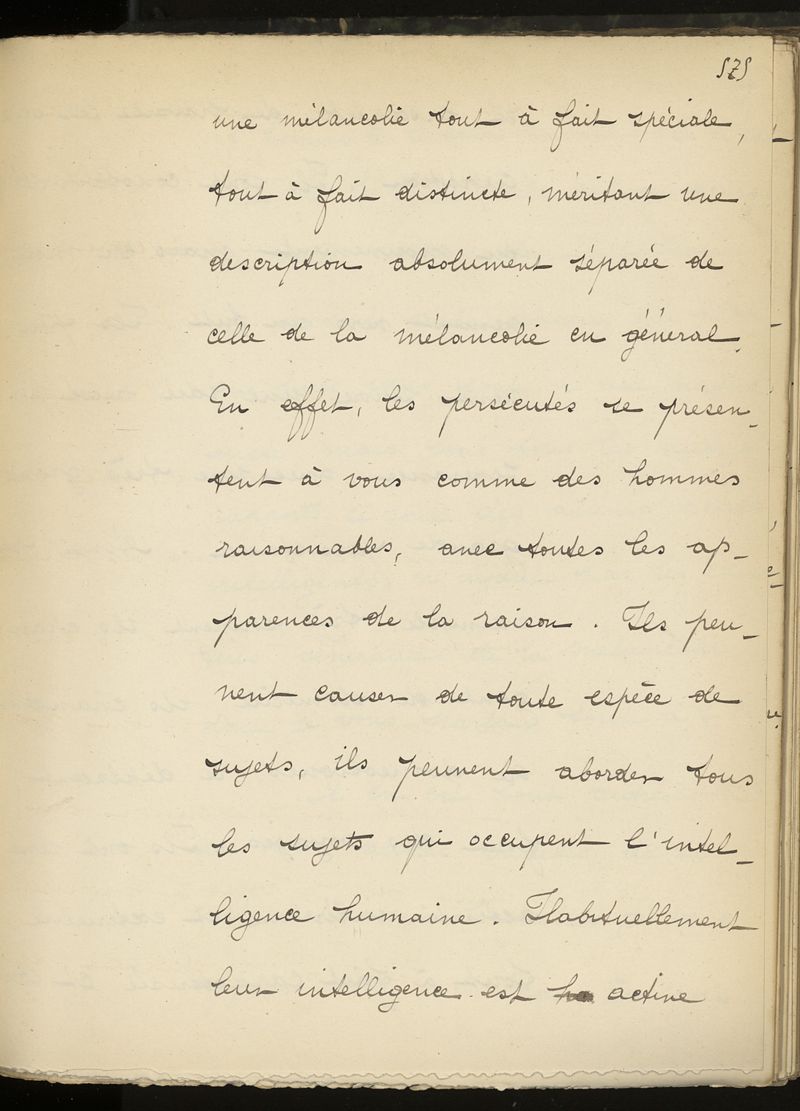 575
une mélancolie tout à fait spéciale,
tout à fait distincte, méritant une
description absolument séparée de
celle de la mélancolie en général.
En effet, les persécutés se présen-
tent à vous comme des hommes
raisonnables, avec toutes les ap-
parences de la raison. Ils peu-
vent causer de toute espèce de
sujets, ils peuvent aborder tous
les sujets qui occupent l'intel-
ligence humaine. Habituellement
leur intelligence est active